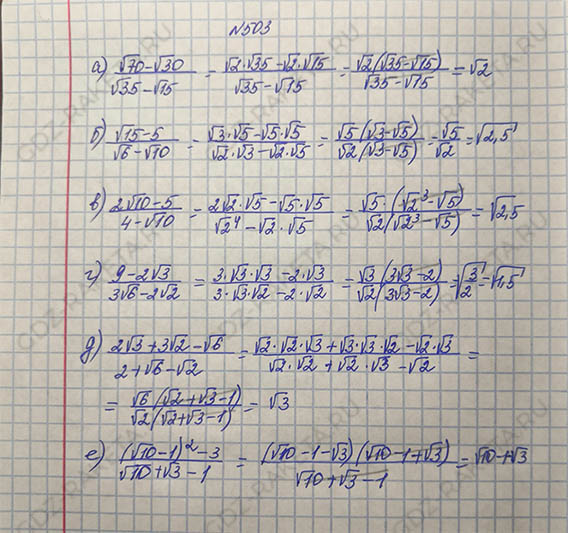 №503
а) (√70-√30)/(√35-√15) = (√2·√35-√2·√15)/(√35-√15) = (√2(√35-√15))/(√35-√15) = √2
б) (√15-5)/(√6-√10) = (√3·√5-√5·√5)/(√2·√3-√2·√5) = (√5(√3-√5))/(√2(√3-√5)) = √5/√2 = √2,5
в) (2√10-5)/(4-√10) = (2√2·√5-√5·√5)/(√2⁴-√2·√5) = (√5·(√2³-√5))/(√2(√2³-√5)) = √2,5
г) (9-2√3)/(3√6-2√2) = (3·√3·√3-2·√3)/(3·√3·√2-2·√2) = (√3(3√3-2))/(√2(3√3-2)) = √(3/2) = √1,5
д) (2√3+3√2-√6)/(2+√6-√2) = (√2·√2·√3+√3·√3·√2-√2·√3)/(√2·√2+√2·√3-√2) =
= (√6(√2+√3-1))/(√2(√2+√3-1)) = √3
е) ((√10-1)²-3)/(√10+√3-1) = ((√10-1-√3)(√10-1+√3))/(√10+√3-1) = √10-1-√3
GDZ-RAKETA.RU